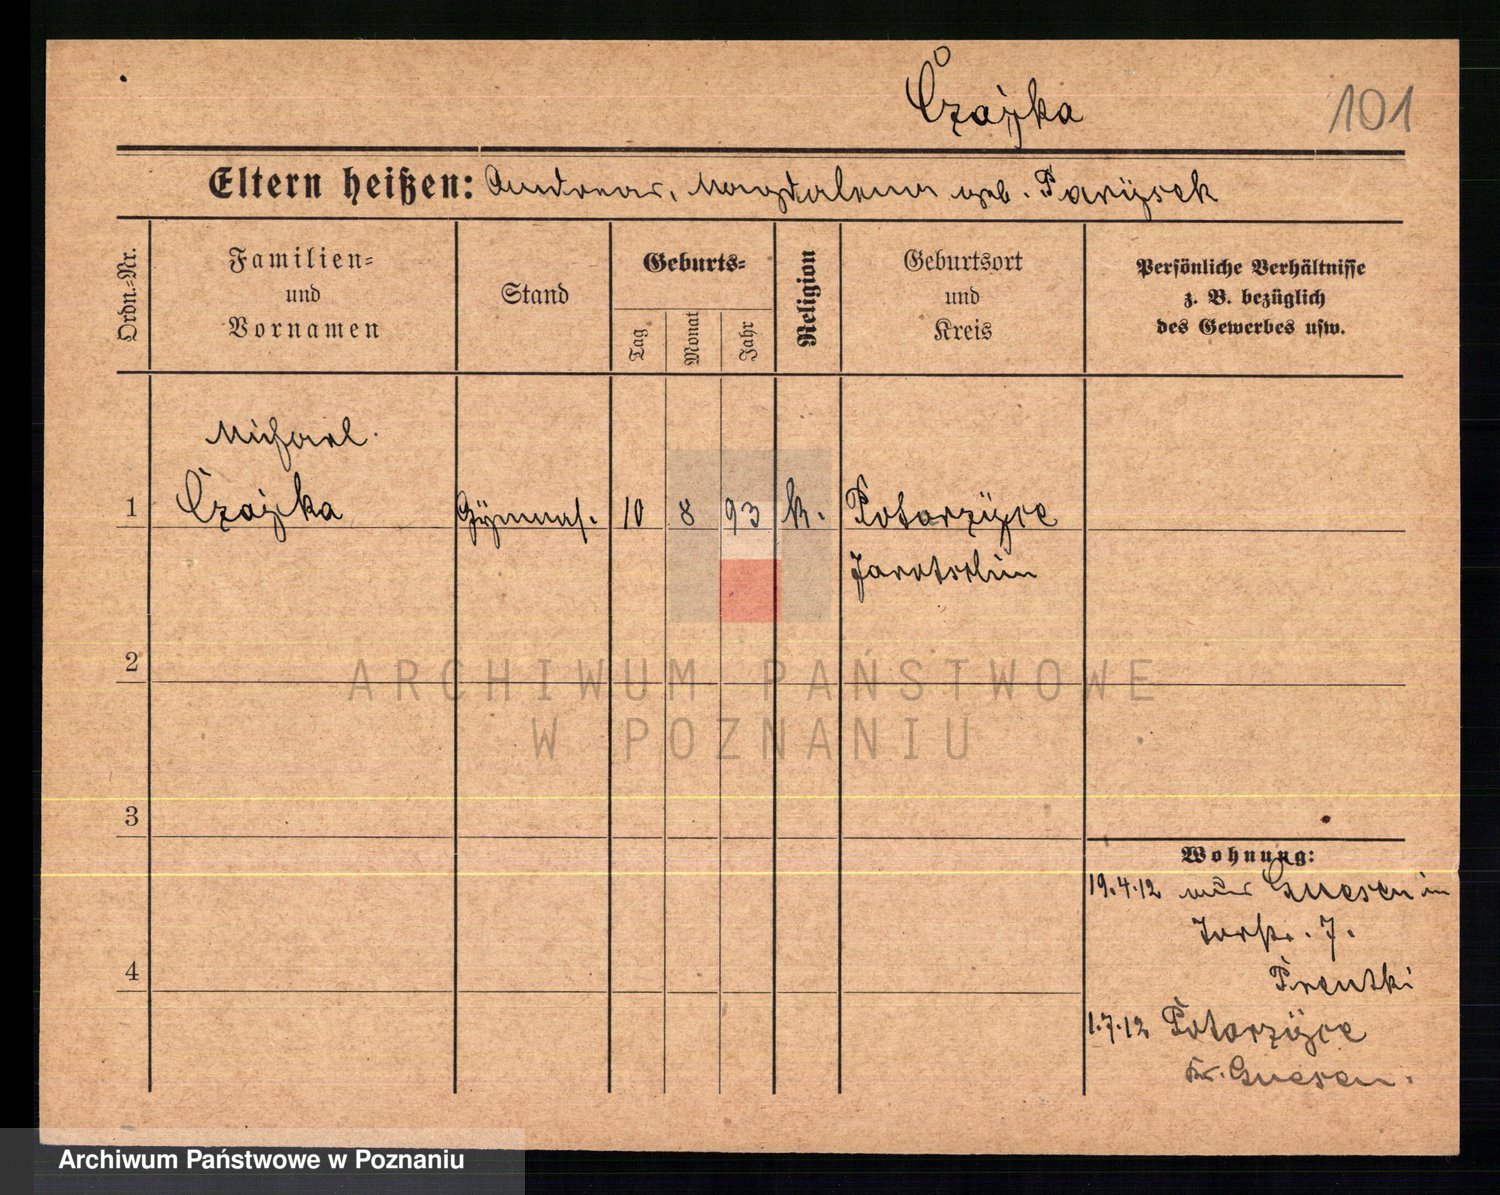 Czajka
101
Eltern heißen: Andreas, Magdalena geb. Parÿsek
Ordn.-Nr.
Familien-
und
Vornamen
Stand
Geburts-
Tag
Monat
Jahr
Religion
Geburtsort
und
Kreis
Persönliche Verhältnisse
z. B. bezüglich
des Gewerbes usw.
Michael
1 Czajka Gÿmnas. 10 8 93 k. Potarzÿce
Jarotschin
2
ARCHIWUM PAŃSTWOWE
W POZNANIU
3
Wohnung:
19.4.12 Gnesen in
7.
4
Prentki
1.7.12 Potarzÿce
Kr. Gnesen.
Archiwum Państwowe w Poznaniu